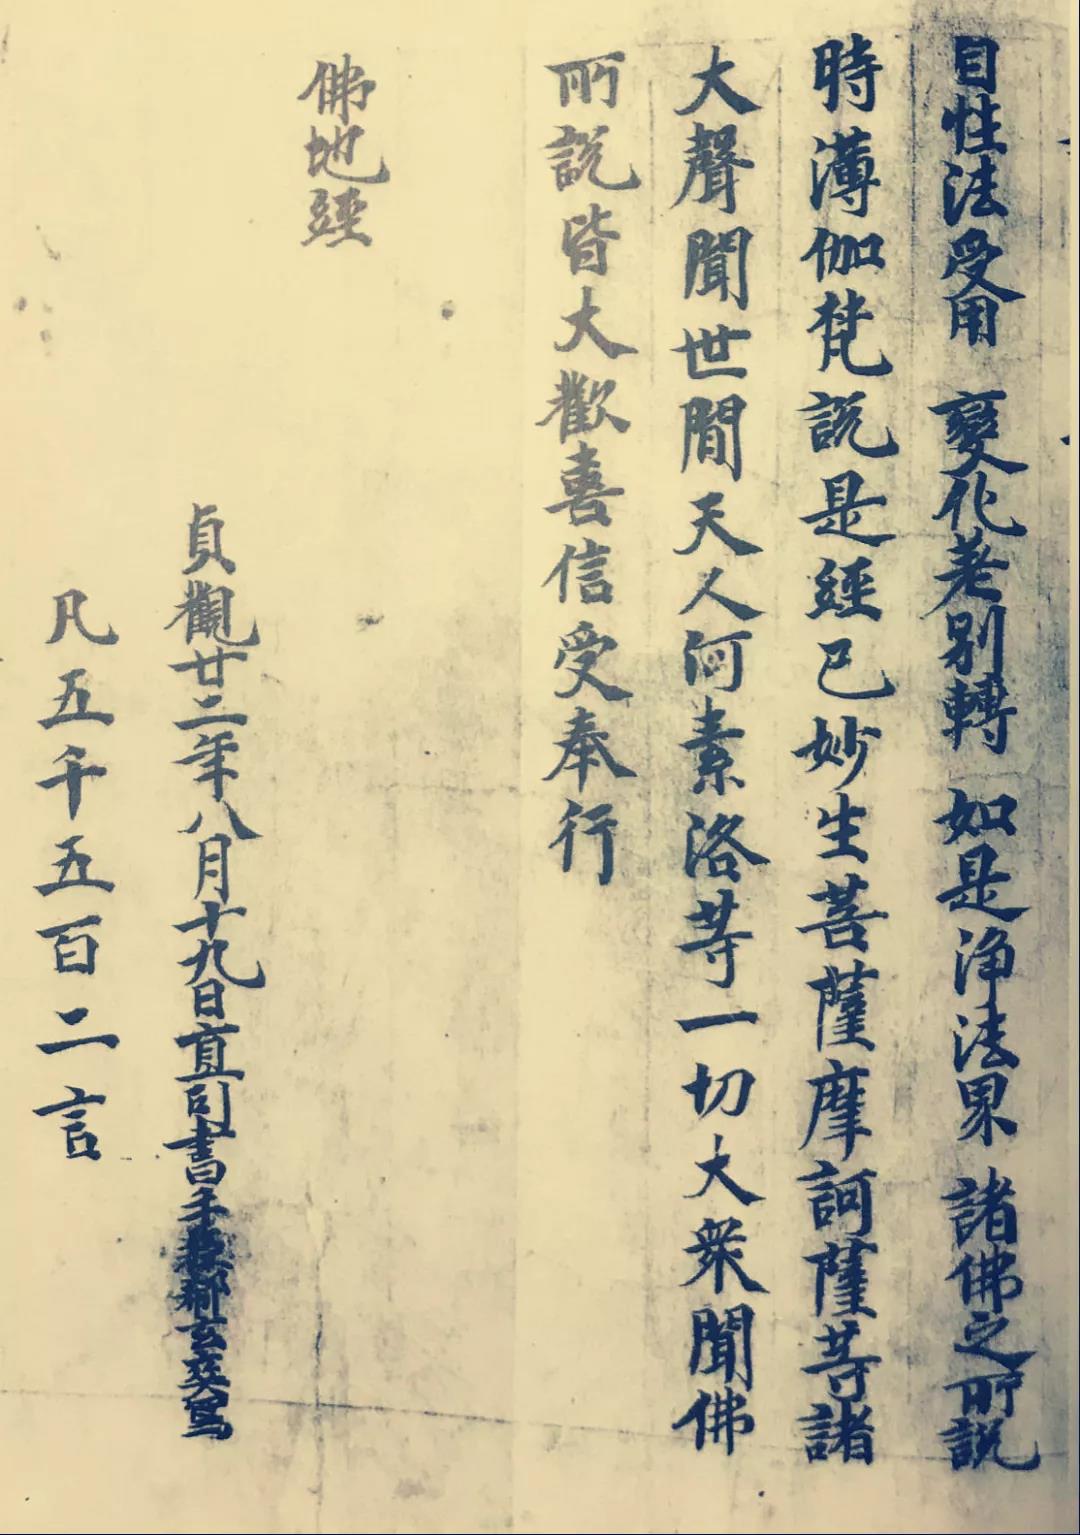 自性法受用 變化差別轉 如是淨法界 諸佛之所說
時薄伽梵說是經已妙生菩薩摩訶薩等諸
大聲聞世間天人阿素洛等一切大眾聞佛
所說皆大歡喜信受奉行
佛地經
貞觀廿二年八月十九日直司書手蘇郗玄爽寫
凡五千五百二言